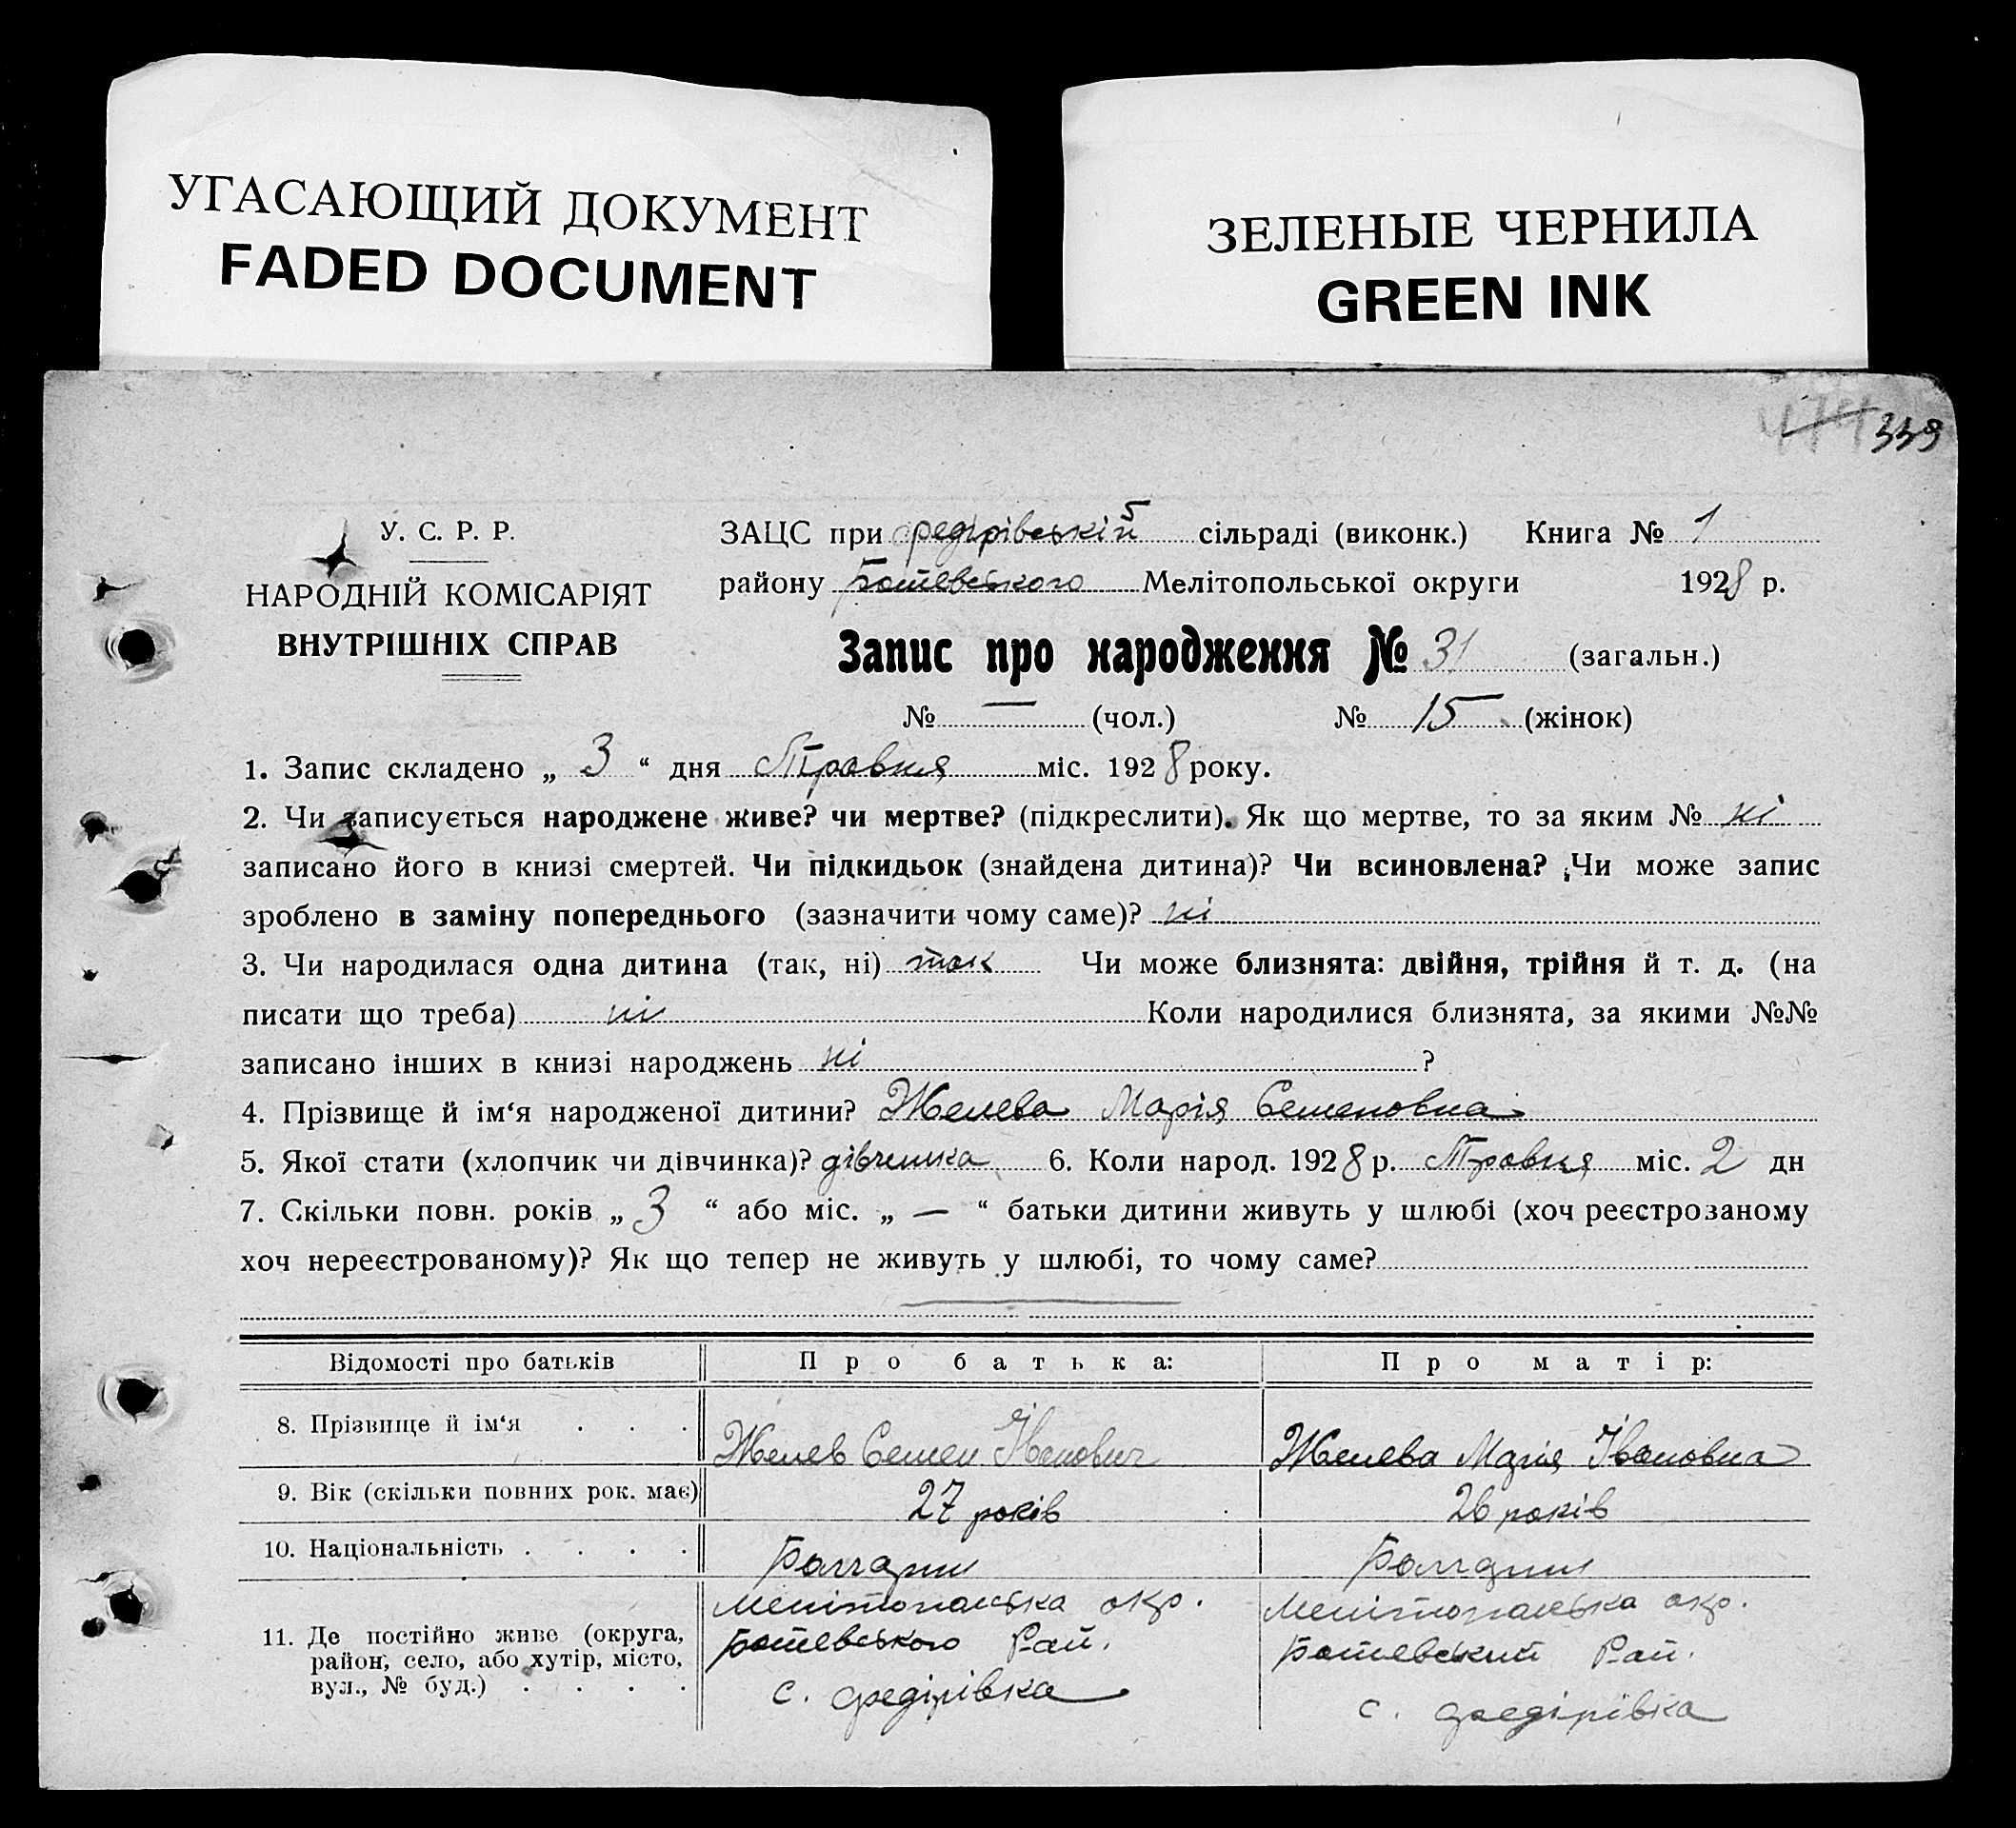 УГАСАЮЩИЙ ДОКУМЕНТ
FADED DOCUMENT
ЗЕЛЕНЫЕ ЧЕРНИЛА
GREEN INK
339
У. С. Р. Р.
НАРОДНІЙ КОМІСАРІЯТ
ВНУТРІШНІХ СПРАВ
ЗАЦС при федірівській сільраді (виконк.) Книга № 1
району Ботевського Мелітопольської округи 1928 р.
Запис про народження № 31 (загальн.)
№ — (чол.) № 15 (жінок)
1. Запис складено „ 3 “ дня Травня міс. 1928 року.
2. Чи записується народжене живе? чи мертве? (підкреслити). Як що мертве, то за яким № ні
записано його в книзі смертей. Чи підкидьок (знайдена дитина)? Чи всиновлена? Чи може запис
зроблено в заміну попереднього (зазначити чому саме)? ні
3. Чи народилася одна дитина (так, ні) так Чи може близнята: двійня, трійня й т. д. (на
писати що треба) ні Коли народилися близнята, за якими №№
записано інших в книзі народжень ні ?
4. Прізвище й ім‘я народженої дитини? Желева Марія Семеновна
5. Якої стати (хлопчик чи дівчинка)? дівчинка 6. Коли народ. 1928 р. Травня міс. 2 дн
7. Скільки повн. років „ 3 “ або міс. „ — “ батьки дитини живуть у шлюбі (хоч реєстрозаному
хоч нереєстрованому)? Як що тепер не живуть у шлюбі, то чому саме?
Відомості про батьків Про батька: Про матір:
8. Прізвище й ім‘я . . . Желев Семен Іванович Желева Марія Івановна
9. Вік (скільки повних рок. має) 27 років 26 років
10. Національність . . . . Болгарин Болгарин
11. Де постійно живе (округа,
район, село, або хутір, місто,
вул., № буд.) . . . .
Мелітопольська окр.
Ботевського Рай.
с. федірівка
Мелітопольська окр.
Ботевський Рай.
с. федірівка